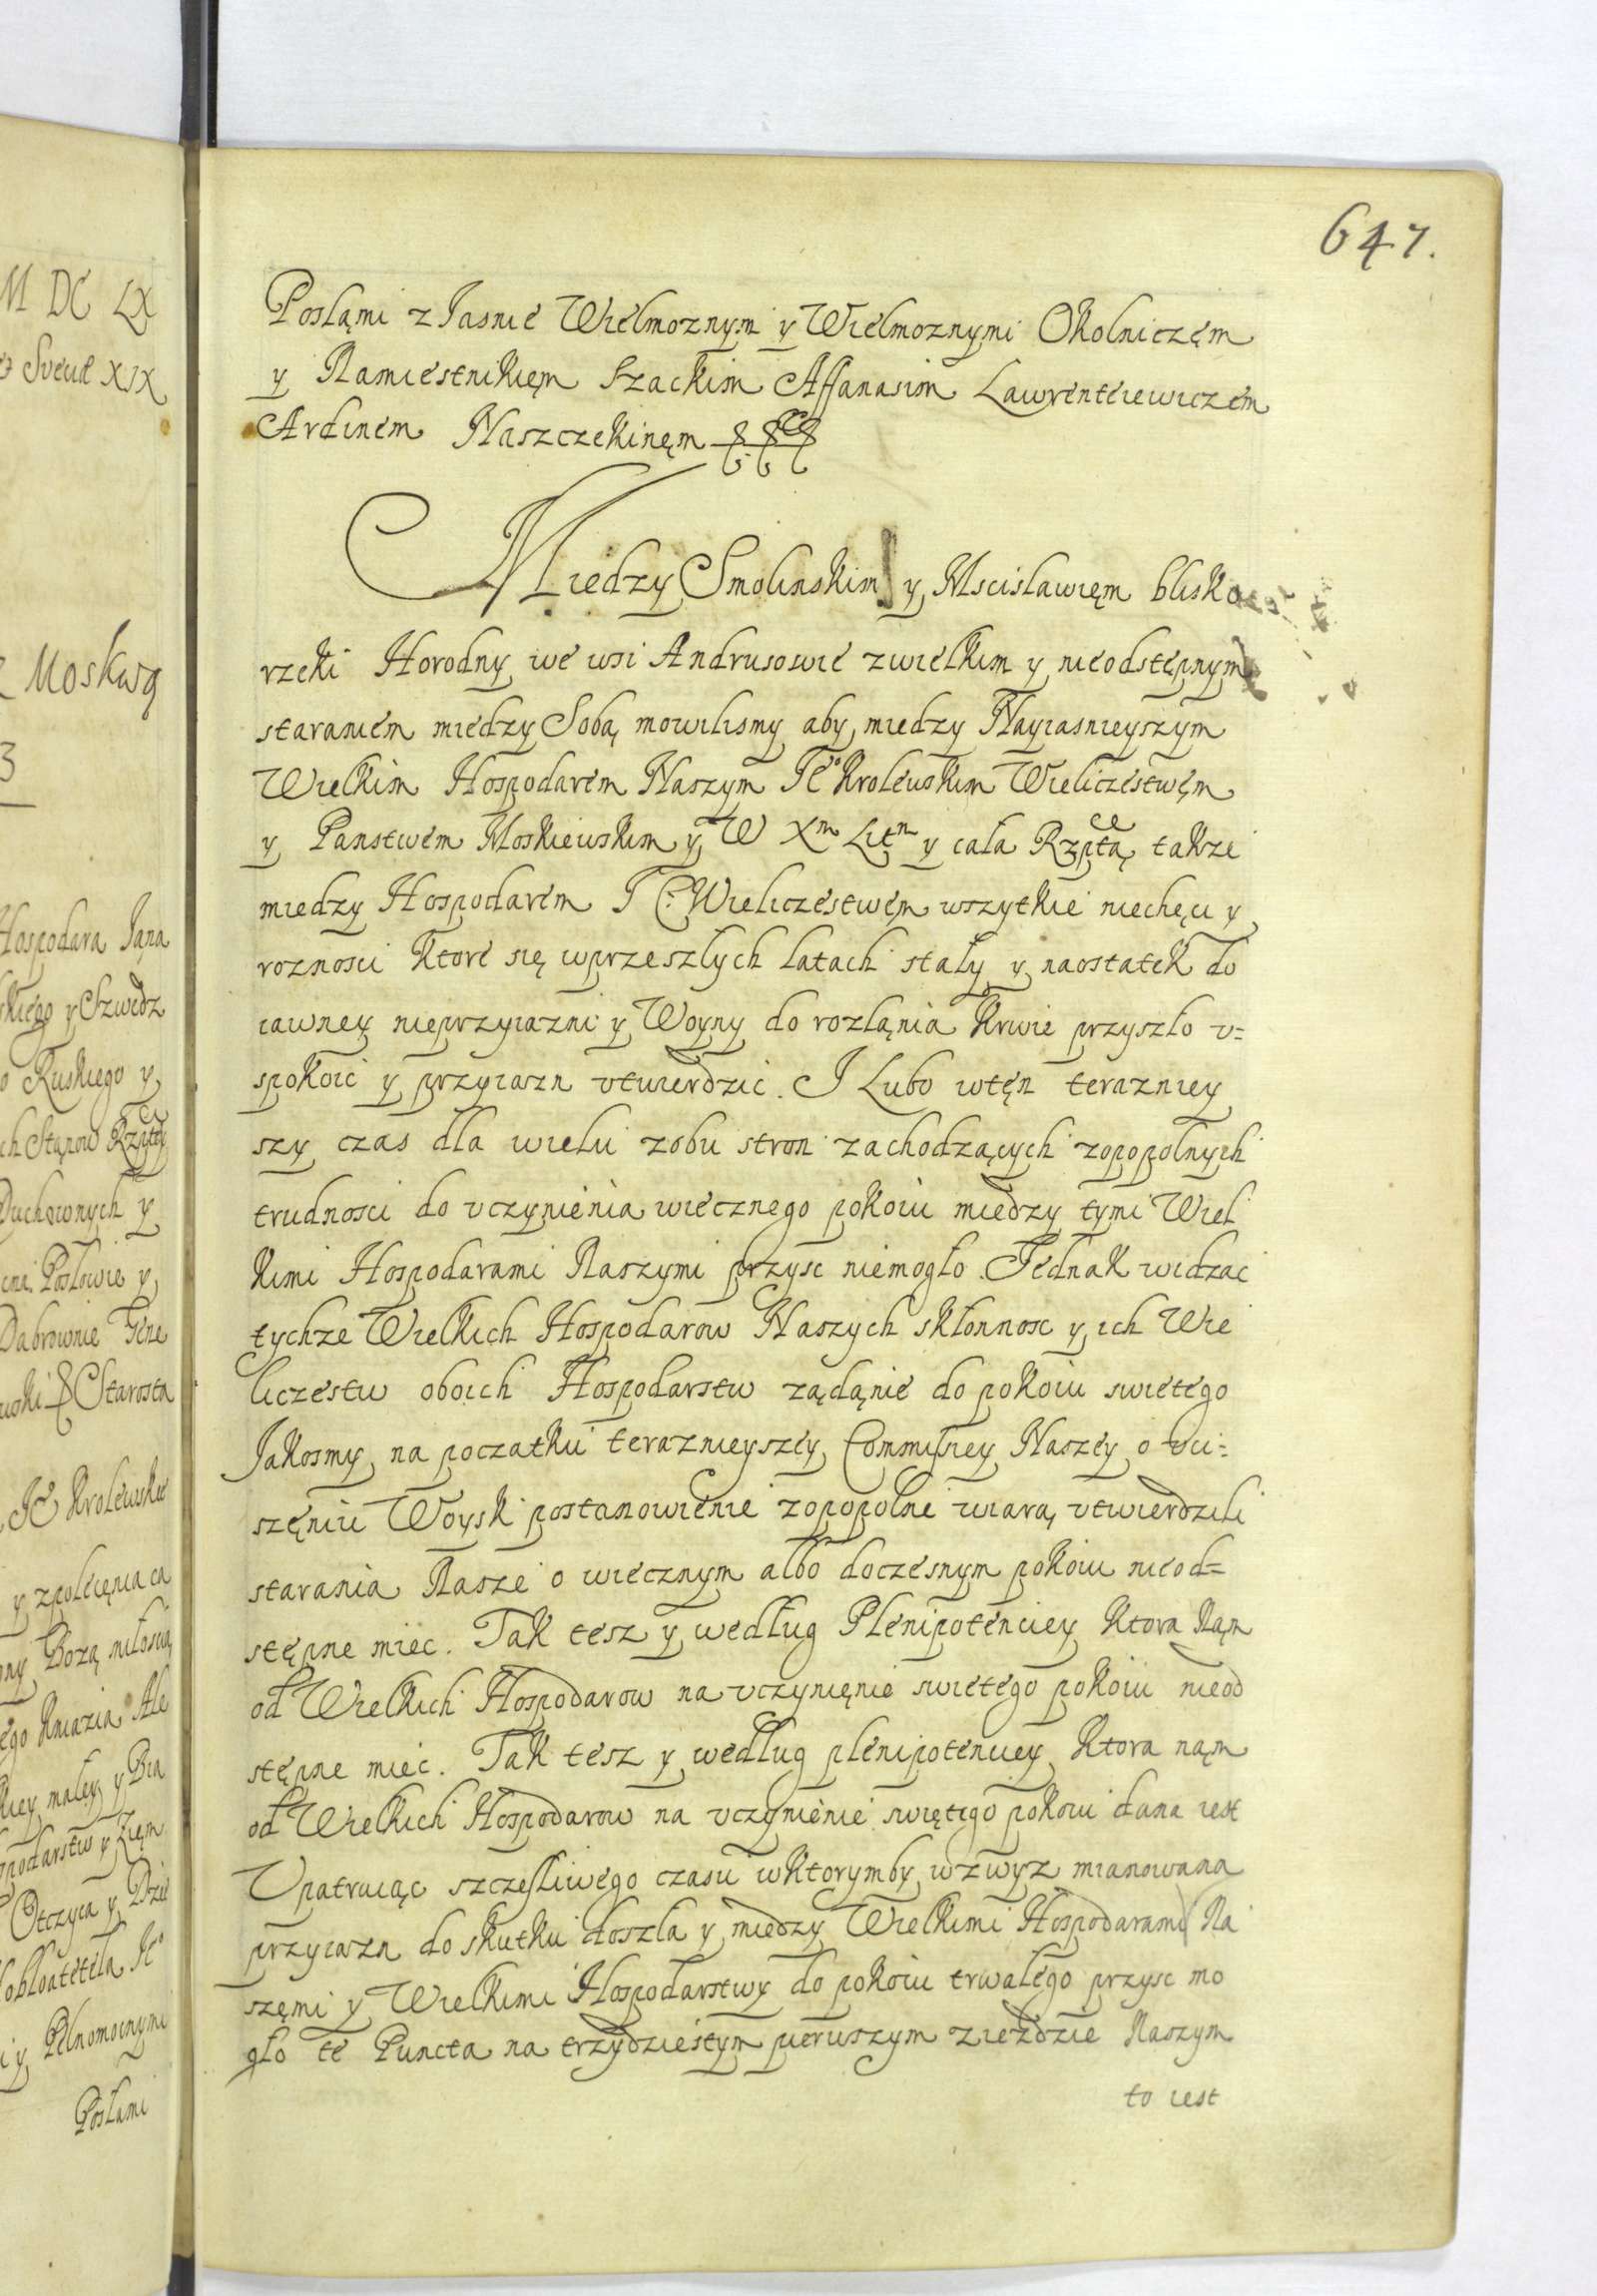 647.
Posląmi z Jasnie Wielmoznym y Wielmoznymi Okolniczęm
y Namiestnikięm Szackim Affanasim Lawrenteiewiczem
Ardinem Naszczekinęm
Miedzy Smolinskim y Mscislawięm blisko
rzeki Horodny we wsi Andrusowie zwielkim y nieodstępnym
staraniem miedzy Sobą mowilismy aby miedzy Nayiasnieyszym
Wielkim Hospodarem Naszym Je° Krolewskim Wieliczestwęm
y Panstwem Moskiewskim y W Xm Litm y cała Rzptą takze
miedzy Hospodarem J C. Wieliczestwem wszytkie niechęci y
roznosci ktore się wprzeszlych latach stały y naostatek do
iawney nieprzyiazni y Woyny do rozląnia krwie przyszło v=
spokoic y przyiazn vtwierdzic. I Lubo wtęn terazniey
szy czas dla wielu zobu stron zachodzących zopopolnych
trudnosci do vczynienia wiecznego pokoiu miedzy tymi Wiel
kimi Hospodarami Naszymi przysc niemogło. Jednak widzac
tychze Wielkich Hospodarow Naszych skłonnosc y ich Wie
liczestw oboich Hospodarstw ządąnie do pokoiu swietego
Jakosmy na początku terazniejszey Commissiey Naszey o vci=
szęniu Woysk postanowienie zopopolne wiarą vtwierdzili
starania Nasze o wiecznym albo doczesnym pokoiu nieod=
stępne miec. Tak tesz y według Plenipotenciey ktora Nąm
od Wielkich Hospodarow na vczynięnie swietego pokoiu nieod
stępne mieć. Tak tesz y według plenipotenciey ktora nąm
od Wielkich Hospodarow na vczynienie swiętego pokoiu dana iest
Upatruiąc szczęsliwego czasu wktorymby wzwyz mianowana
przyiazn do skutku doszla y miedzy Wielkimi Hospodarami Na
szęmi y Wielkimi Hospodarstwy do pokoiu trwałego przysc mo
gło te Puncta na trzydziestym pierwszym ziezdzie Naszym
to iest